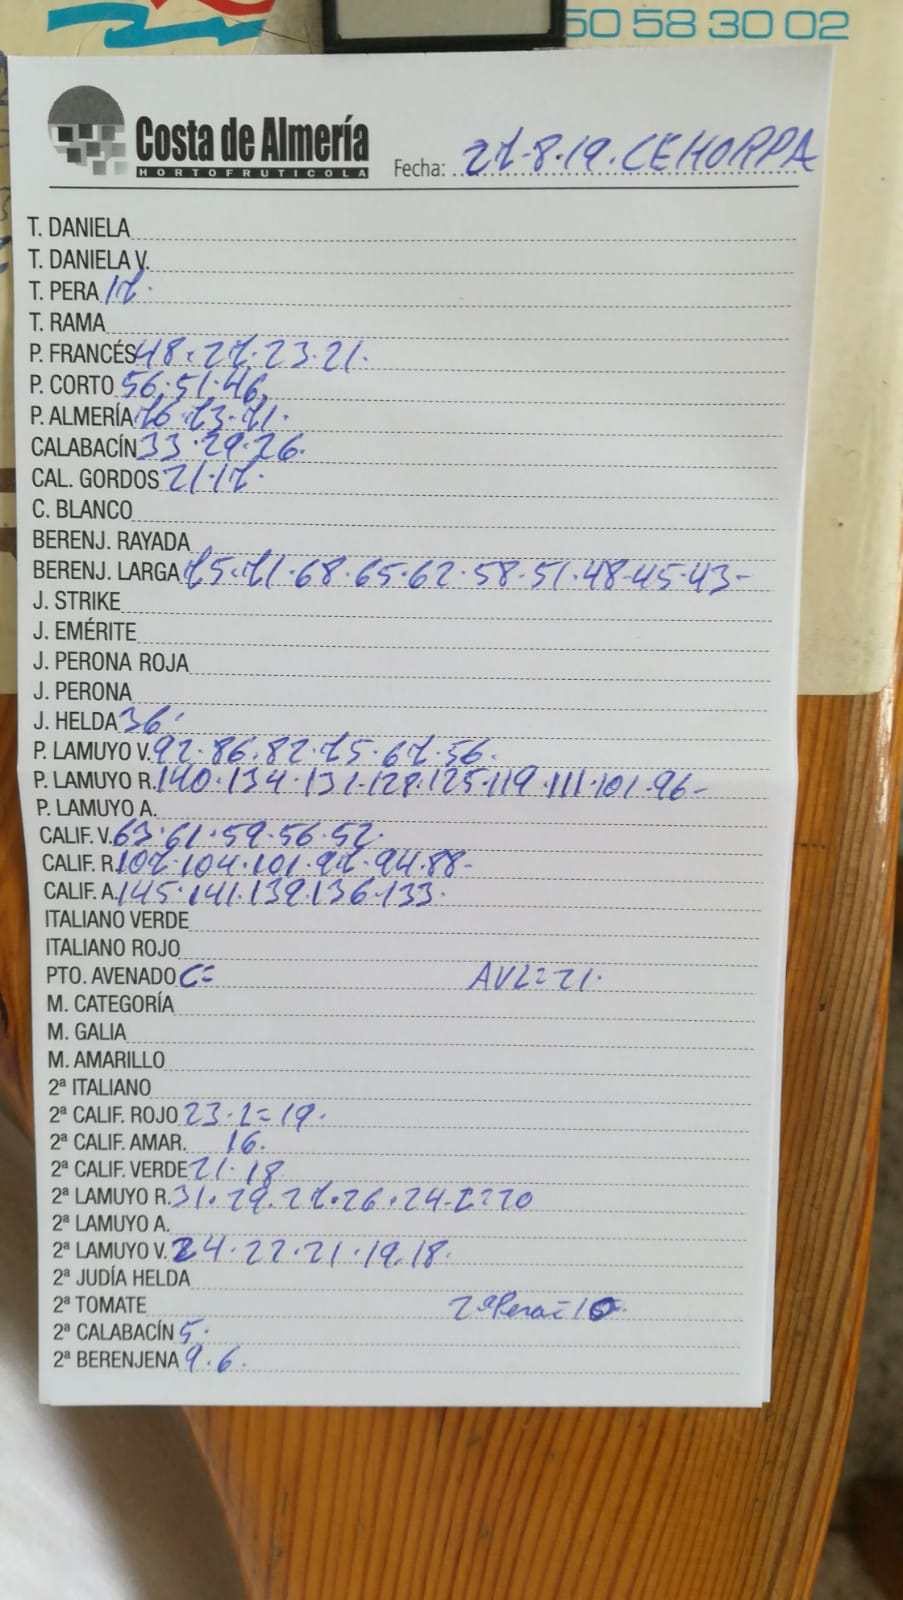 50 58 30 02
Costa de Almería
HORTOFRUTICOLA
Fecha: 27-8-19. CEHORPA
T. DANIELA
T. DANIELA V.
T. PERA 17.
T. RAMA
P. FRANCÉS 48.27.23.21.
P. CORTO 56.51.46.
P. ALMERÍA 76.73.71.
CALABACÍN 33.29.26.
CAL. GORDOS 21.17.
C. BLANCO
BERENJ. RAYADA
BERENJ. LARGA 75.71.68.65.62.58.51.48.45.43-
J. STRIKE
J. EMÉRITE
J. PERONA ROJA
J. PERONA
J. HELDA 36.
P. LAMUYO V. 92.86.82.75.67.56.
P. LAMUYO R. 140.134.131.128.125.119.111.101.96-
P. LAMUYO A.
CALIF. V. 63.61.59.56.52.
CALIF. R. 107.104.101.97.94.88-
CALIF. A. 145.141.139.136.133.
ITALIANO VERDE
ITALIANO ROJO
PTO. AVENADO C= AVL=21.
M. CATEGORÍA
M. GALIA
M. AMARILLO
2ª ITALIANO
2ª CALIF. ROJO 23.2=19.
2ª CALIF. AMAR. 16.
2ª CALIF. VERDE 21.18
2ª LAMUYO R. 31.29.27.26.24-2=20
2ª LAMUYO A.
2ª LAMUYO V. 24.22.21.19.18.
2ª JUDÍA HELDA
2ª TOMATE 2ª Pera=10
2ª CALABACÍN 5.
2ª BERENJENA 9.6.